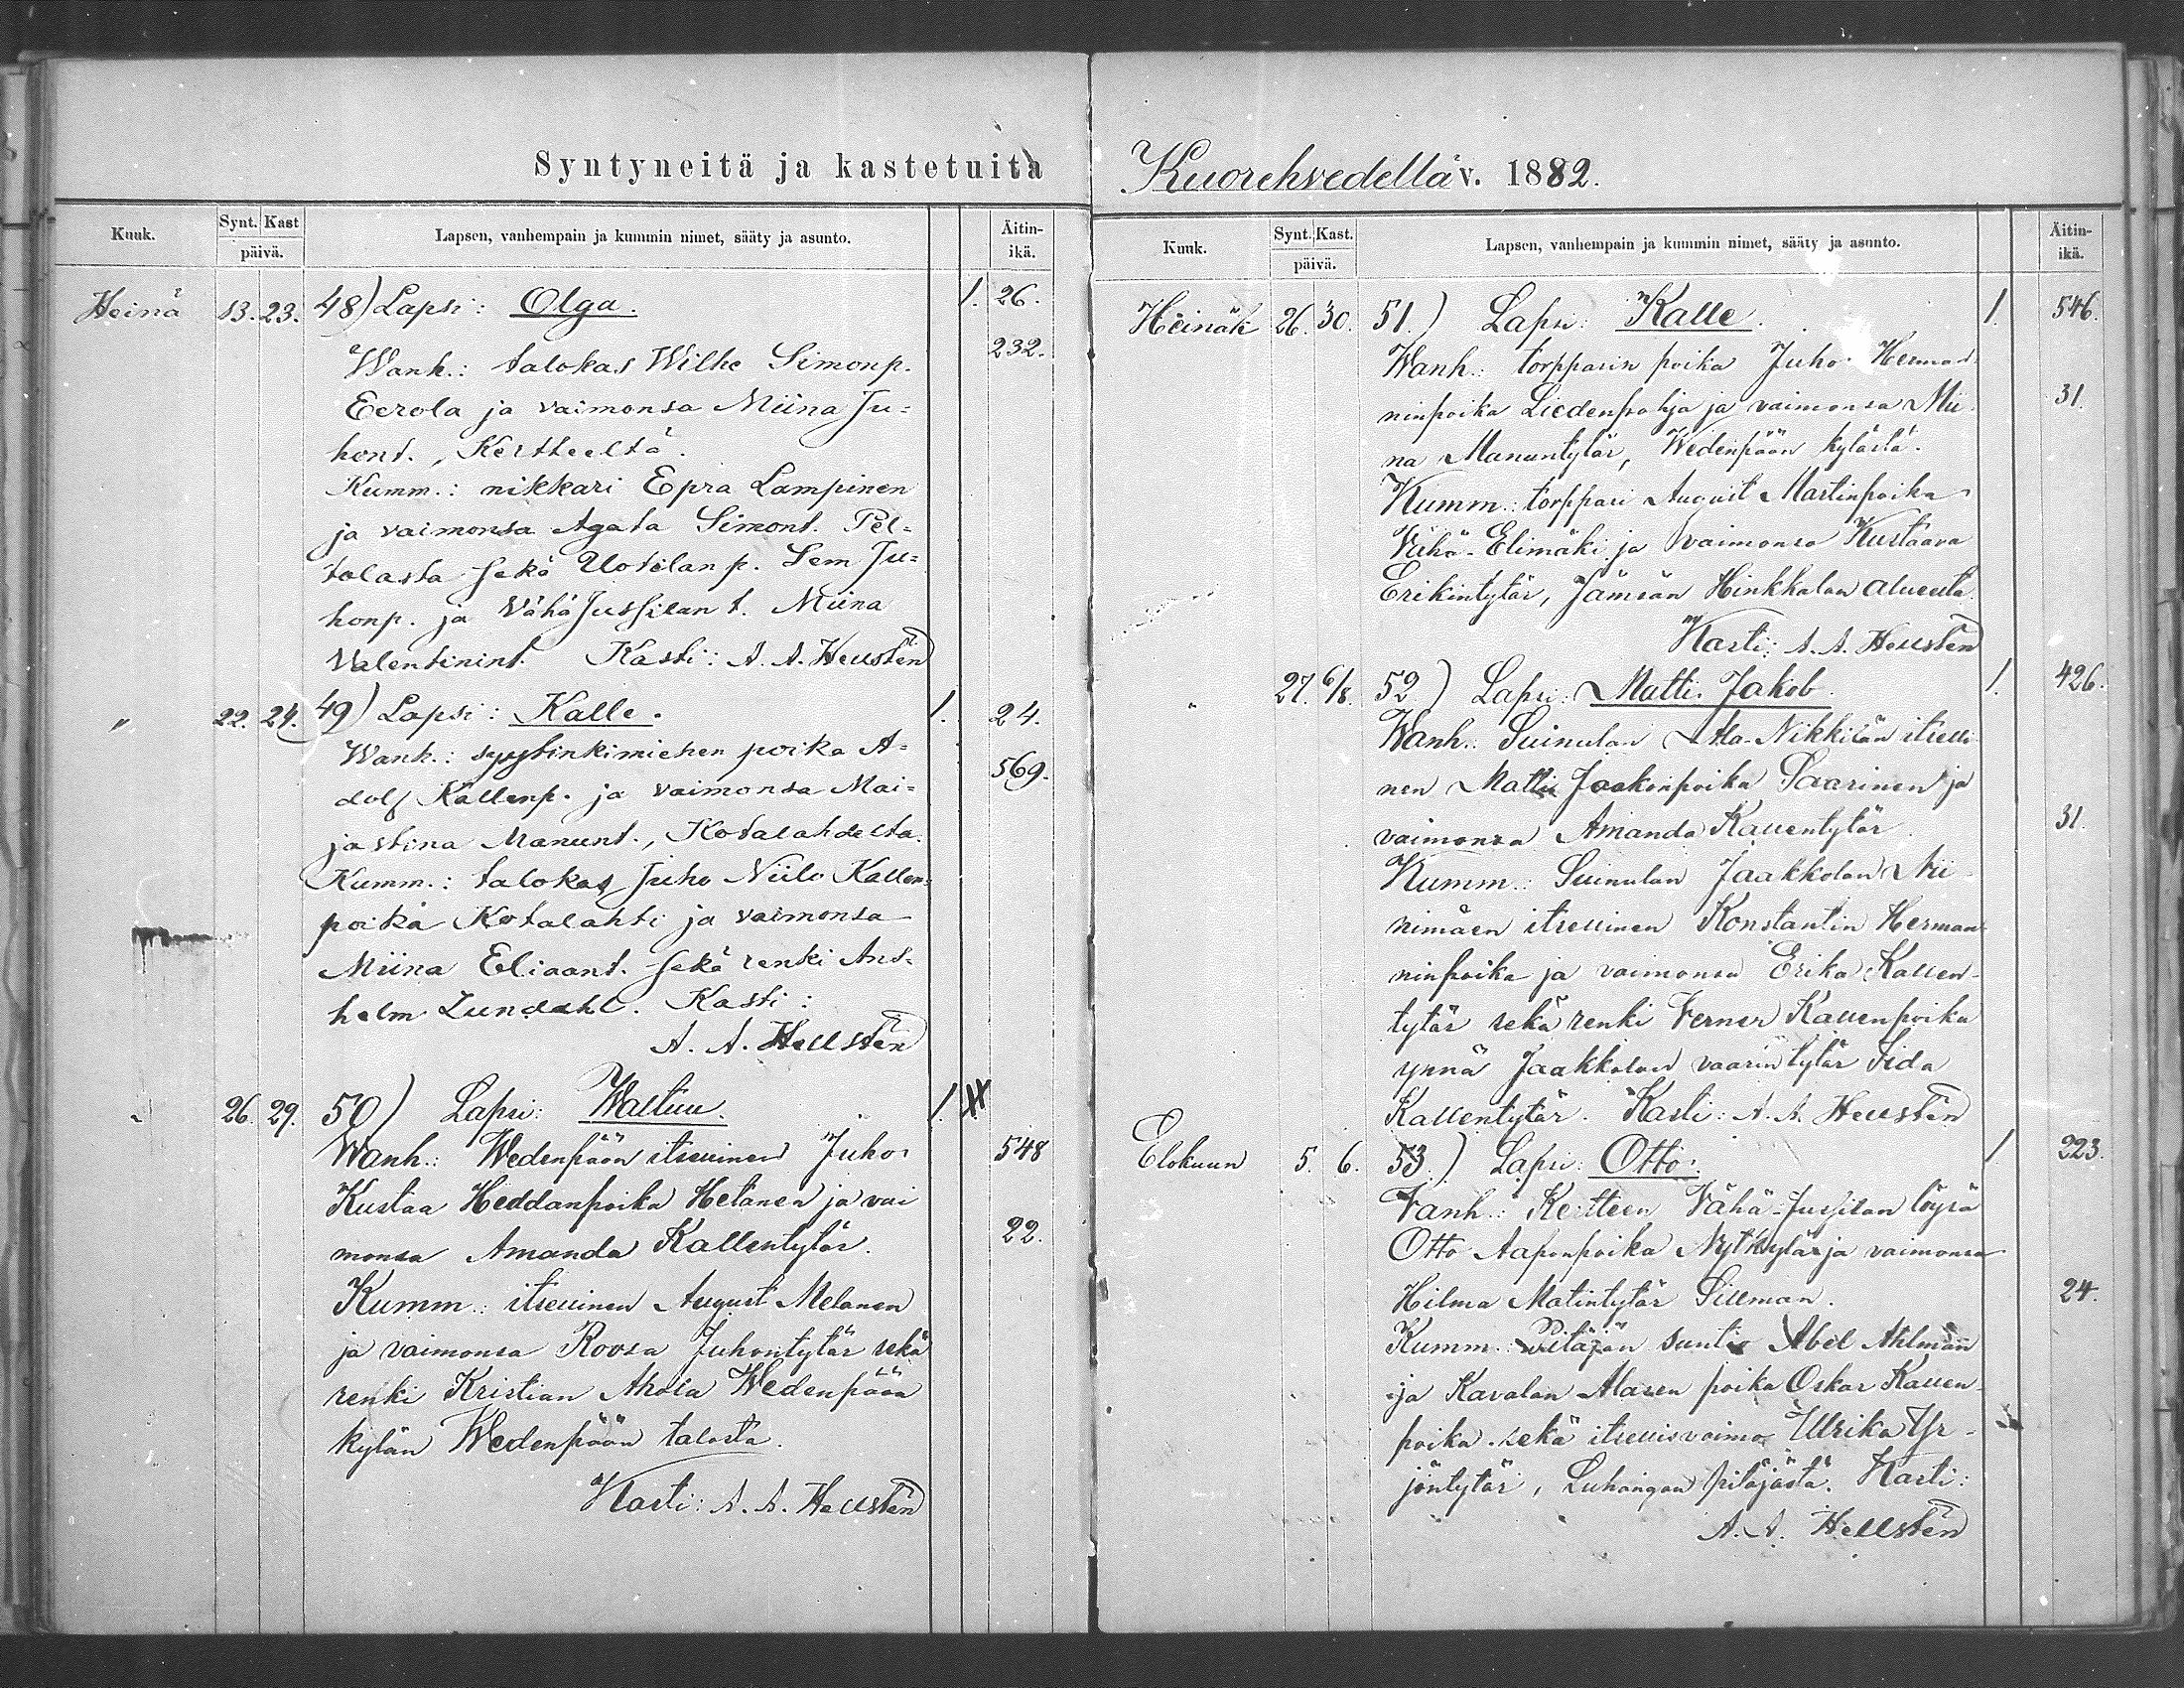 Syntyneitä ja kastetuita
Kuuk. Synt. Kast päivä. Lapsen, vanhempain ja kummin nimet, sääty ja asunto. Äitin-ikä.
Heinä 13. 23. 48) Lapsi: Olga. 1. 26.
Wanh.: talokas Wilhe Simonp. 232.
Eerola ja vaimonsa Miina Ju=
hont., Kertteeltä.
Kumm.: nikkari Epra Lampinen
ja vaimonsa Agata Simont. Pel=
tolasta sekä Uotilan p. Sem Ju=
honp. ja Vähä Jussilan t. Miina
Valentinint. Kasti: A. A. Hellstén
" 22. 24. 49) Lapsi: Kalle. 1. 24.
Wanh.: syystinkimiehen poika A= 569.
dolf Kallenp. ja vaimonsa Mai=
jastina Manunt., Kotalahdelta.
Kumm.: talokas Juho Niilo Kallen=
poika Kotalahti ja vaimonsa
Miina Eliaant. sekä renki Ans=
helm Lundahl. Kasti:
A. A. Hellstén
" 26. 29. 50) Lapsi: Walttu. 1.
Wanh.: Wedenpään itsellinen Juho 548
Kustaa Heddanpoika Hetanen ja vai
monsa Amanda Kallentytär. 22.
Kumm.: itsellinen August Melanen
ja vaimonsa Roosa Juhontytär sekä
renki Kristian Ahola Wedenpään
kylän Wedenpään talosta.
Kasti: A. A. Hellstén
Kuorehvedellä v. 1882.
Kuuk. Synt. Kast. päivä. Lapsen, vanhempain ja kummin nimet, sääty ja asunto. Äitin-ikä.
Heinäk 26. 30. 51.) Lapsi: Kalle. 1. 546.
Wanh.: torpparin poika Juho Herman
ninpoika Liedenpohja ja vaimonsa Mii 31.
na Manuntytär, Wedenpään kylästä.
Kumm.: torppari August Martinpoika
Vähä-Elimäki ja vaimonsa Kustaava
Erikintytär, Jämsän Hinkkalan alueelta.
Kasti: A. A. Hellstén
" 27. 6/8. 52) Lapsi: Matti Jakob. 1. 426.
Wanh.: Suinulan Ala-Nikkilän itselli
nen Matti Jaakonpoika Saarinen ja
vaimonsa Amanda Kallentytär. 31.
Kumm.: Suinulan Jaakkolan Nii
nimäen itsellinen Konstantin Herman
ninpoika ja vaimonsa Erika Kallen-
tytär sekä renki Verner Kallenpoika
ynnä Jaakkolan vaarin tytär Iida
Kallentytär. Kasti: A. A. Hellstén
Elokuun 5. 6. 53.) Lapsi: Otto. 1. 223.
Vanh.: Keitteen Vähä-Jussilan löysä
Otto Aaponpoika Nytkylä ja vaimonsa
Hilma Matintytär Sillman. 24.
Kumm.: Pitäjän suntio Abel Ahlman
ja Kavalan Alasen poika Oskar Kallen-
poika sekä itsellisvaimo Ullrika Yr-
jöntytär, Luhangan pitäjästä. Kasti:
A. A. Hellstén